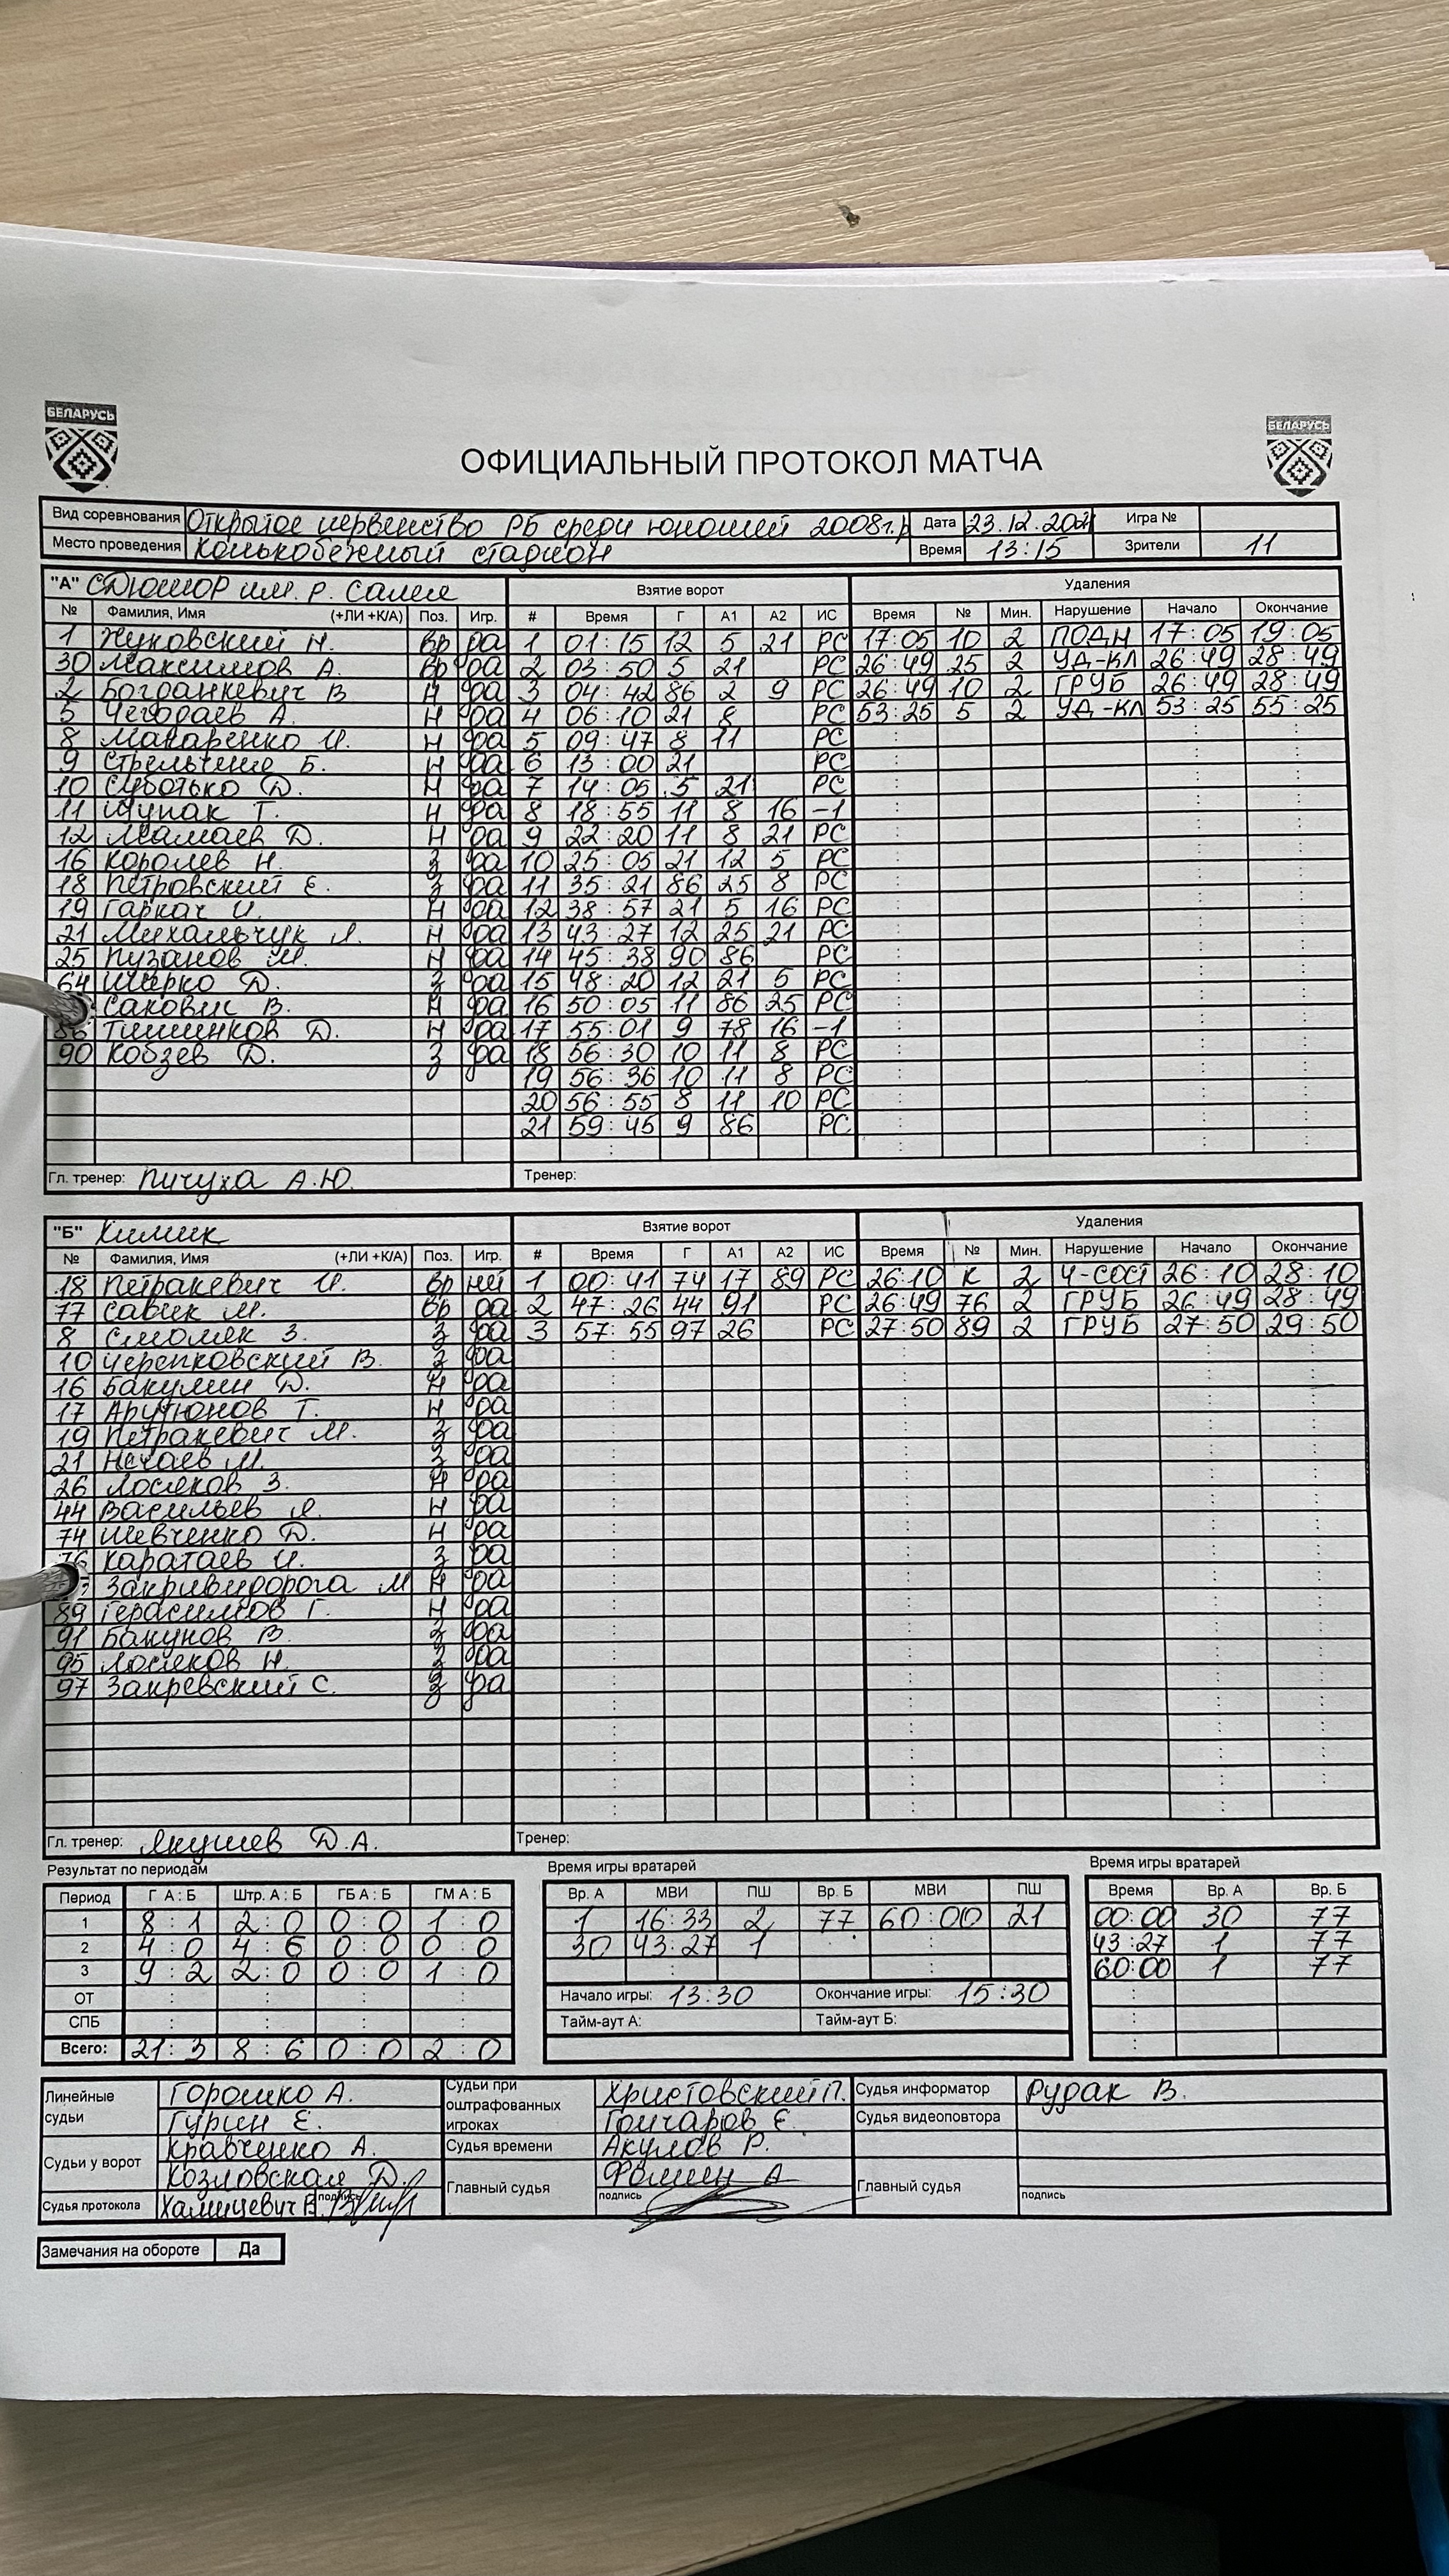 БЕЛАРУСЬ
БЕЛАРУСЬ
ОФИЦИАЛЬНЫЙ ПРОТОКОЛ МАТЧА
Вид соревнования Открытое первенство РБ среди юношей 2008г.р Дата 23.12.2021 Игра №
Место проведения Конькобежный стадион Время 13:15 Зрители 11
"А" СДЮШОР им. Р. Салея Взятие ворот Удаления
№ Фамилия, Имя (+ЛИ +К/А) Поз. Игр. # Время Г А1 А2 ИС Время № Мин. Нарушение Начало Окончание
1 Жуковский Н. Вр да 1 01:15 12 5 21 РС 17:05 10 2 ПОДН 17:05 19:05
30 Максимов А. Вр да 2 03:50 5 21 РС 26:49 25 2 УД-КЛ 26:49 28:49
2 Богданкевич В Н да 3 04:42 86 2 9 РС 26:49 10 2 ГРУБ 26:49 28:49
5 Чегодаев А. Н да 4 06:10 21 8 РС 53:25 5 2 УД-КЛ 53:25 55:25
8 Макаренко И. Н да 5 09:47 8 11 РС
9 Стрельчене Б. Н да 6 13:00 21 РС
10 Суботько Д. Н да 7 14:05 5 21 РС
11 Щупак Т. Н да 8 18:55 11 8 16 -1
12 Мамаев Д. Н да 9 22:20 11 8 21 РС
16 Королев Н. З да 10 25:05 21 12 5 РС
18 Петровский Е. З да 11 35:21 86 25 8 РС
19 Гаркач И. Н да 12 38:57 21 5 16 РС
21 Михальчук Я. Н да 13 43:27 12 25 21 РС
25 Пузанов М. Н да 14 45:38 90 86 РС
64 Ширко Д. З да 15 48:20 12 21 5 РС
Сакович В. Н да 16 50:05 11 86 25 РС
86 Тишинков Д. Н да 17 55:01 9 78 16 -1
90 Кобзев Д. З да 18 56:30 10 11 8 РС
19 56:36 10 11 8 РС
20 56:55 8 11 10 РС
21 59:45 9 86 РС
Гл. тренер: Пичуха А.Ю. Тренер:
"Б" Химик Взятие ворот Удаления
№ Фамилия, Имя (+ЛИ +К/А) Поз. Игр. # Время Г А1 А2 ИС Время № Мин. Нарушение Начало Окончание
18 Петракевич И. Вр нет 1 00:41 74 17 89 РС 26:10 К 2 Ч-СОСТ 26:10 28:10
77 Савик М. Вр да 2 47:26 44 91 РС 26:49 76 2 ГРУБ 26:49 28:49
8 Смоляк З. З да 3 57:55 97 26 РС 27:50 89 2 ГРУБ 27:50 29:50
10 Черепковский В. З да
16 Бакулин Д. Н да
17 Арутюнов Т. Н да
19 Петракевич М. З да
21 Нечаев М. З да
26 Лосяков З. Н да
44 Васильев Я. Н да
74 Шевченко Д. Н да
76 Каратаев И. З да
Закривидорога М Н да
89 Герасимов Г. Н да
91 Бакунов В. З да
95 Лосяков Н. З да
97 Закревский С. З да
Гл. тренер: Якушев Д.А. Тренер:
Результат по периодам Время игры вратарей Время игры вратарей
Период Г А : Б Штр. А : Б ГБ А : Б ГМ А : Б Вр. А МВИ ПШ Вр. Б МВИ ПШ Время Вр. А Вр. Б
1 8:1 2:0 0:0 1:0 1 16:33 2 77 60:00 21 00:00 30 77
2 4:0 4:6 0:0 0:0 30 43:27 1 43:27 1 77
3 9:2 2:0 0:0 1:0 60:00 1 77
ОТ Начало игры: 13:30 Окончание игры: 15:30
СПБ Тайм-аут А: Тайм-аут Б:
Всего: 21:3 8:6 0:0 2:0
Линейные судьи Горошко А. Судьи при оштрафованных игроках Христовский П. Судья информатор Рудак В.
Гурин Е. Гончаров Е. Судья видеоповтора
Судьи у ворот Кравченко А. Судья времени Акулов Р.
Козловская Д. Главный судья Фомин А Главный судья
Судья протокола Хамицевич В. подпись подпись подпись
Замечания на обороте Да